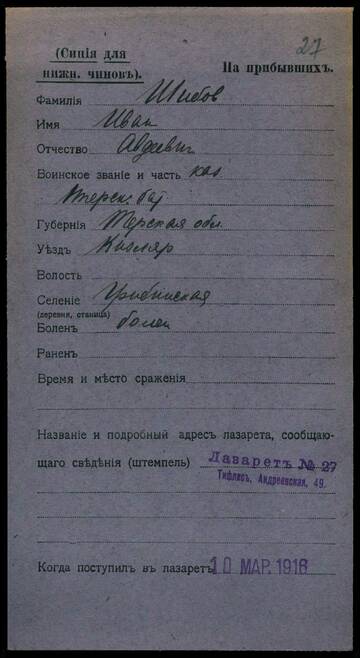 27
(Синія для
нижн. чиновъ).
На прибывшихъ.
Фамилія Шибов
Имя Иван
Отчество Авдеевич
Воинское званіе и часть каз
Терск. бат
Губернія Терская обл.
Уѣздъ Кизляр
Волость
Селеніе
(деревня, станица)
Боленъ болен
Раненъ
Время и мѣсто сраженія
Названіе и подробный адресъ лазарета, сообщаю-
щаго свѣдѣнія (штемпель) Лазаретъ № 27
Тифлисъ, Андреевская, 49.
Когда поступилъ въ лазаретъ 10 МАР. 1916